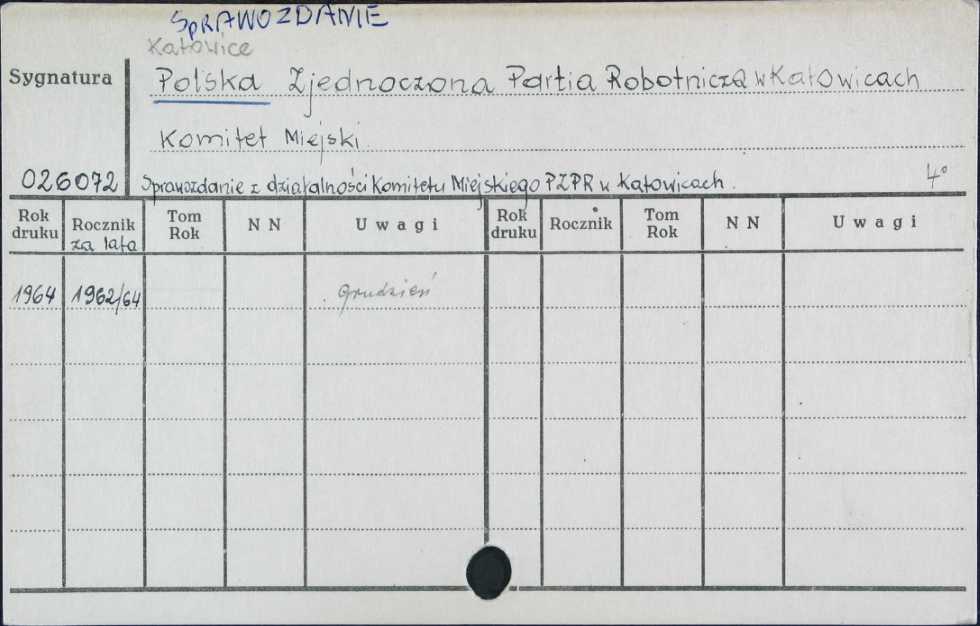 SPRAWOZDANIE
Katowice
Sygnatura
Polska Zjednoczona Partia Robotnicza w Katowicach
Komitet Miejski.
026072 Sprawozdanie z działalności Komitetu Miejskiego PZPR w Katowicach. 4°
Rok druku Rocznik za lata Tom Rok N N Uwagi Rok druku Rocznik Tom Rok N N Uwagi
1964 1962/64 Grudzień